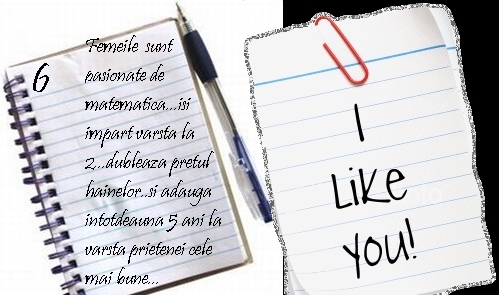 6
Femeile sunt
pasionate de
matematica...isi
impart varsta la
2...dubleaza pretul
hainelor..si adauga
intotdeauna 5 ani la
varsta prietenei cele
mai bune...
I
Like
you!